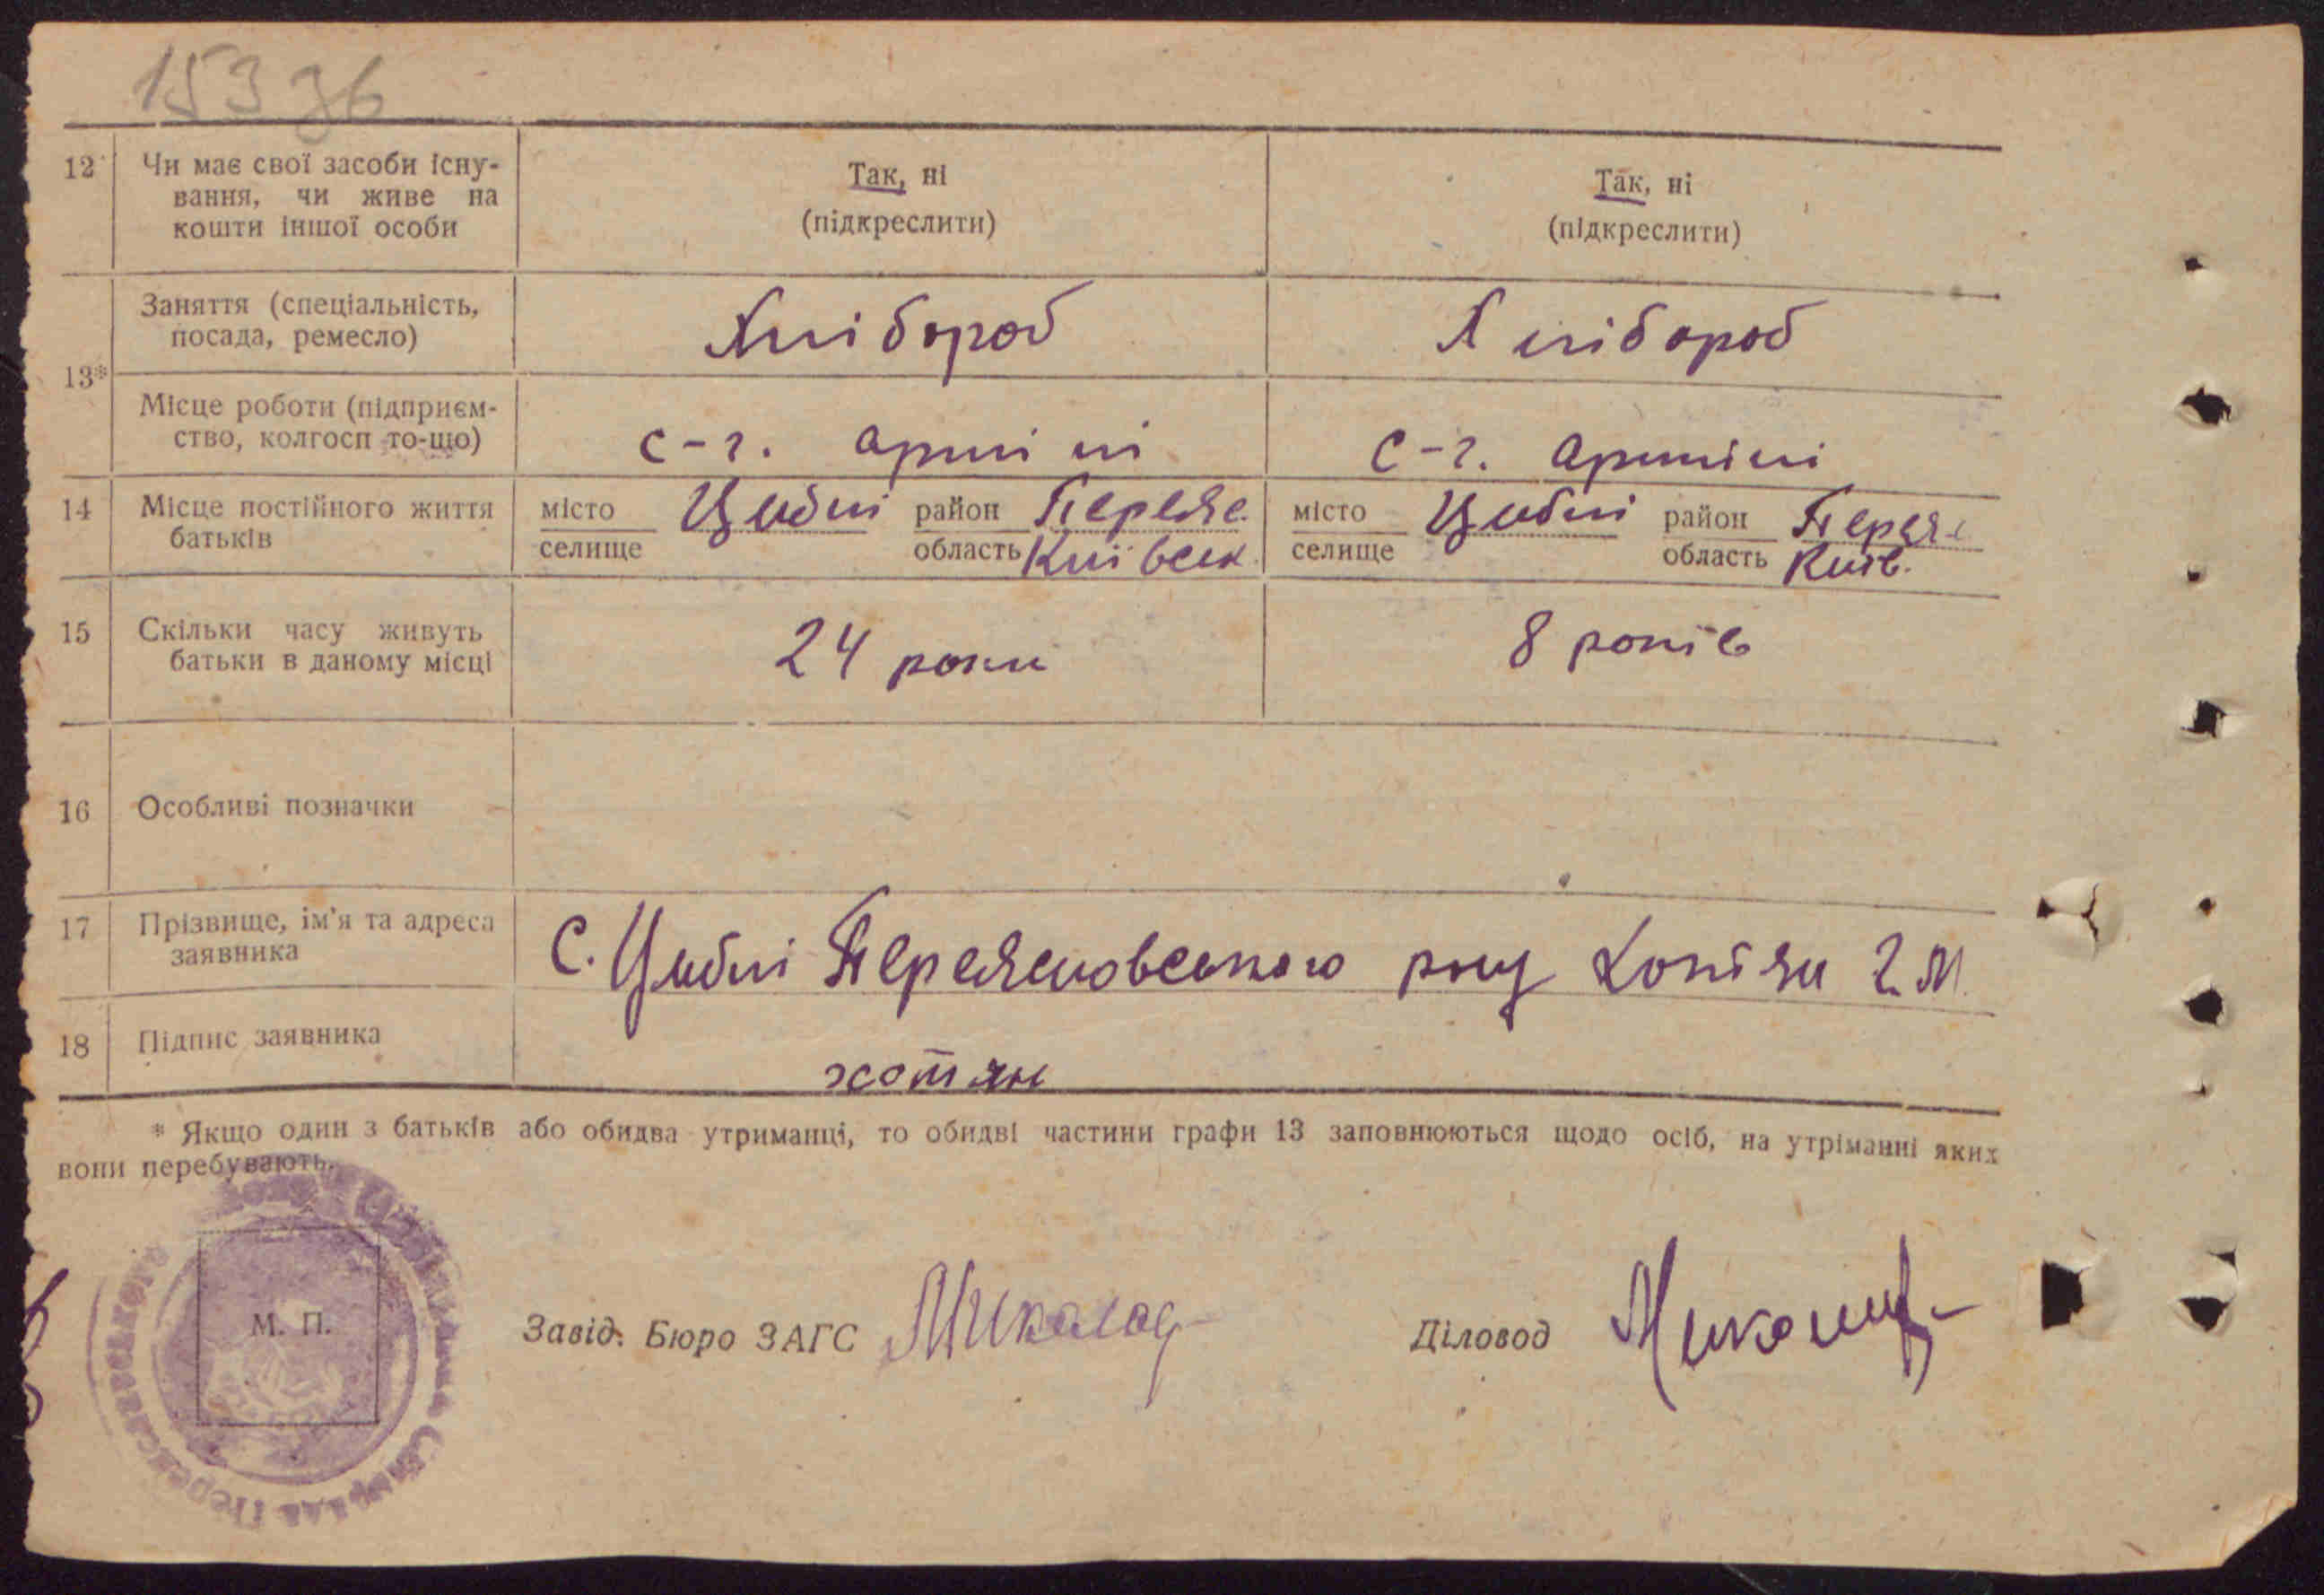 153 зв
12 Чи має свої засоби існу- Так, ні Так, ні
вання, чи живе на (підкреслити) (підкреслити)
кошти іншої особи
13* Заняття (спеціальність, Хлібороб Хлібороб
посада, ремесло)
Місце роботи (підприєм- с-г. артілі с-г. артілі
ство, колгосп то-що)
14 Місце постійного життя місто Циблі район Переяс. місто Циблі район Переяс
батьків селище область Київськ селище область Київ.
15 Скільки часу живуть 24 роки 8 років
батьки в даному місці
16 Особливі позначки
17 Прізвище, ім'я та адреса С. Циблі Переясловського р-ну Хотян Г. М.
заявника
18 Підпис заявника хотян
* Якщо один з батьків або обидва утриманці, то обидві частини графи 13 заповнюються щодо осіб, на утріманні яких
вони перебувають.
М. П.
Завід. Бюро ЗАГС
Діловод